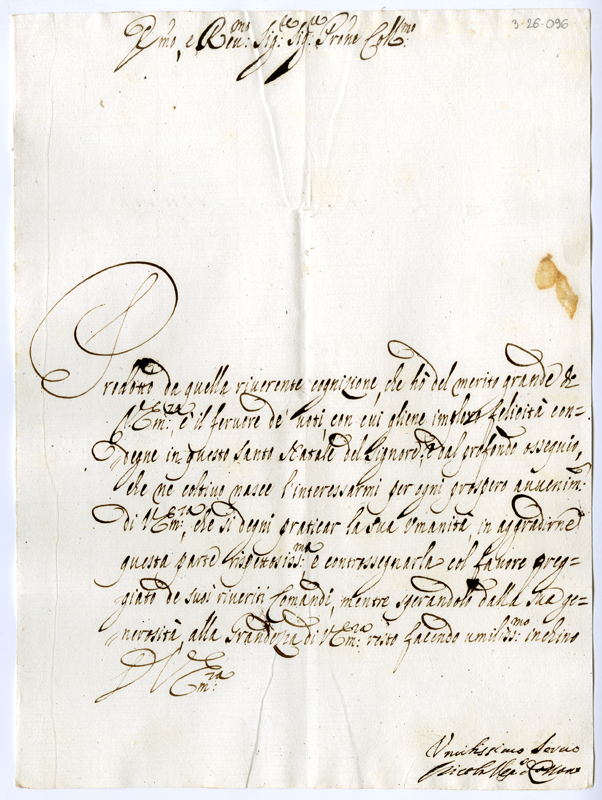 3-26-096
Emo, e Reu:mo Sig:re Sig:re Prone Coll:mo
Prodotto da quella riuerente cognizione, che hò del merito grande di
V.Em:za, è il feruore de' uoti, con cui gliene imploro felicità con=
degne in questo Santo Natale del Signore, e dal profondo ossequio,
che ne coltiuo nasce l'interessarmi per ogni prospero auuenim:
di V.Em:za, che si degni praticar la sua Vmanità, in aggradirne
questa parte rispettosiss:ma e contrassegnarla col fauore preg=
giato de suoi riueriti Comandi, mentre sperandolo dalla sua ge=
nerosità alla Grandezza di V.Em:za resto facendo umiliss:mo inchino
D V.Em:za
Vmilissimo Seruo
Nicola